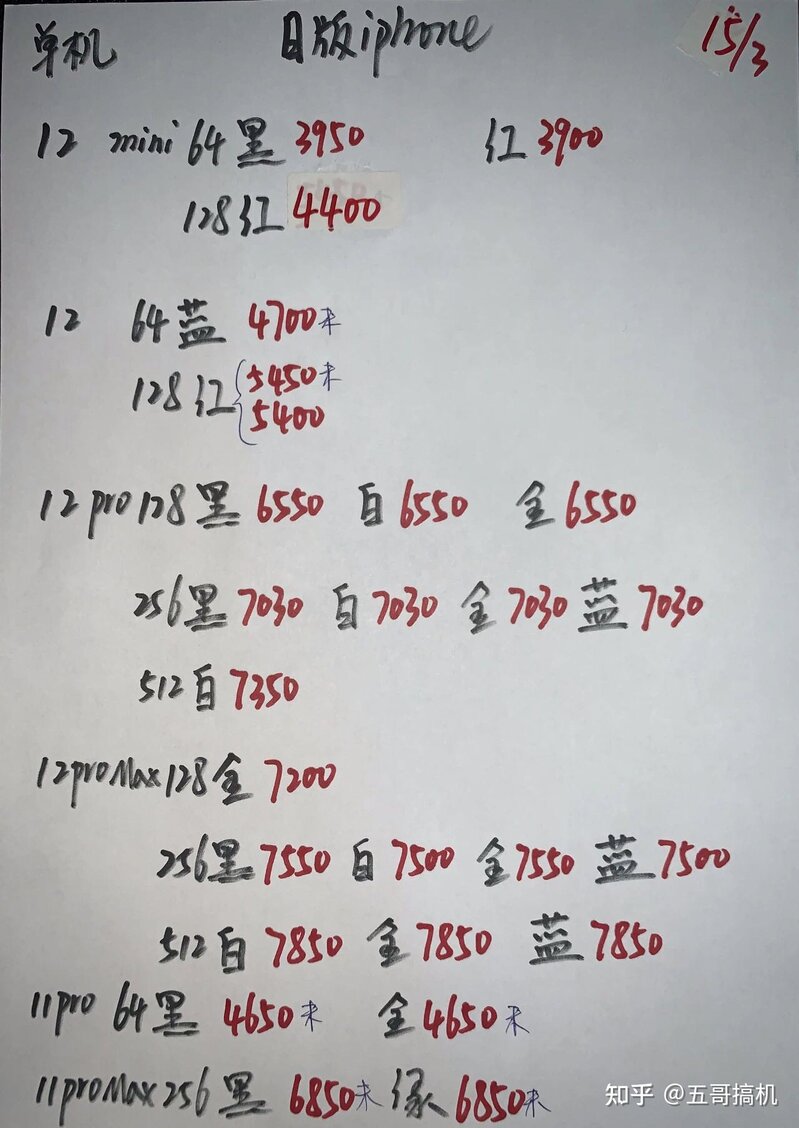 单机 日版iphone 15/3
12 mini 64黑 3950 红 3900
128红 4400
12 64蓝 4700未
128红 5450未
5400
12pro128黑 6550 白 6550 金 6550
256黑 7030 白 7030 金 7030 蓝 7030
512白 7350
12proMax128金 7200
256黑 7550 白 7500 金 7550 蓝 7500
512白 7850 金 7850 蓝 7850
11pro 64黑 4650未 金 4650未
11proMax256黑 6850未 绿 6850未
知乎 @五哥搞机